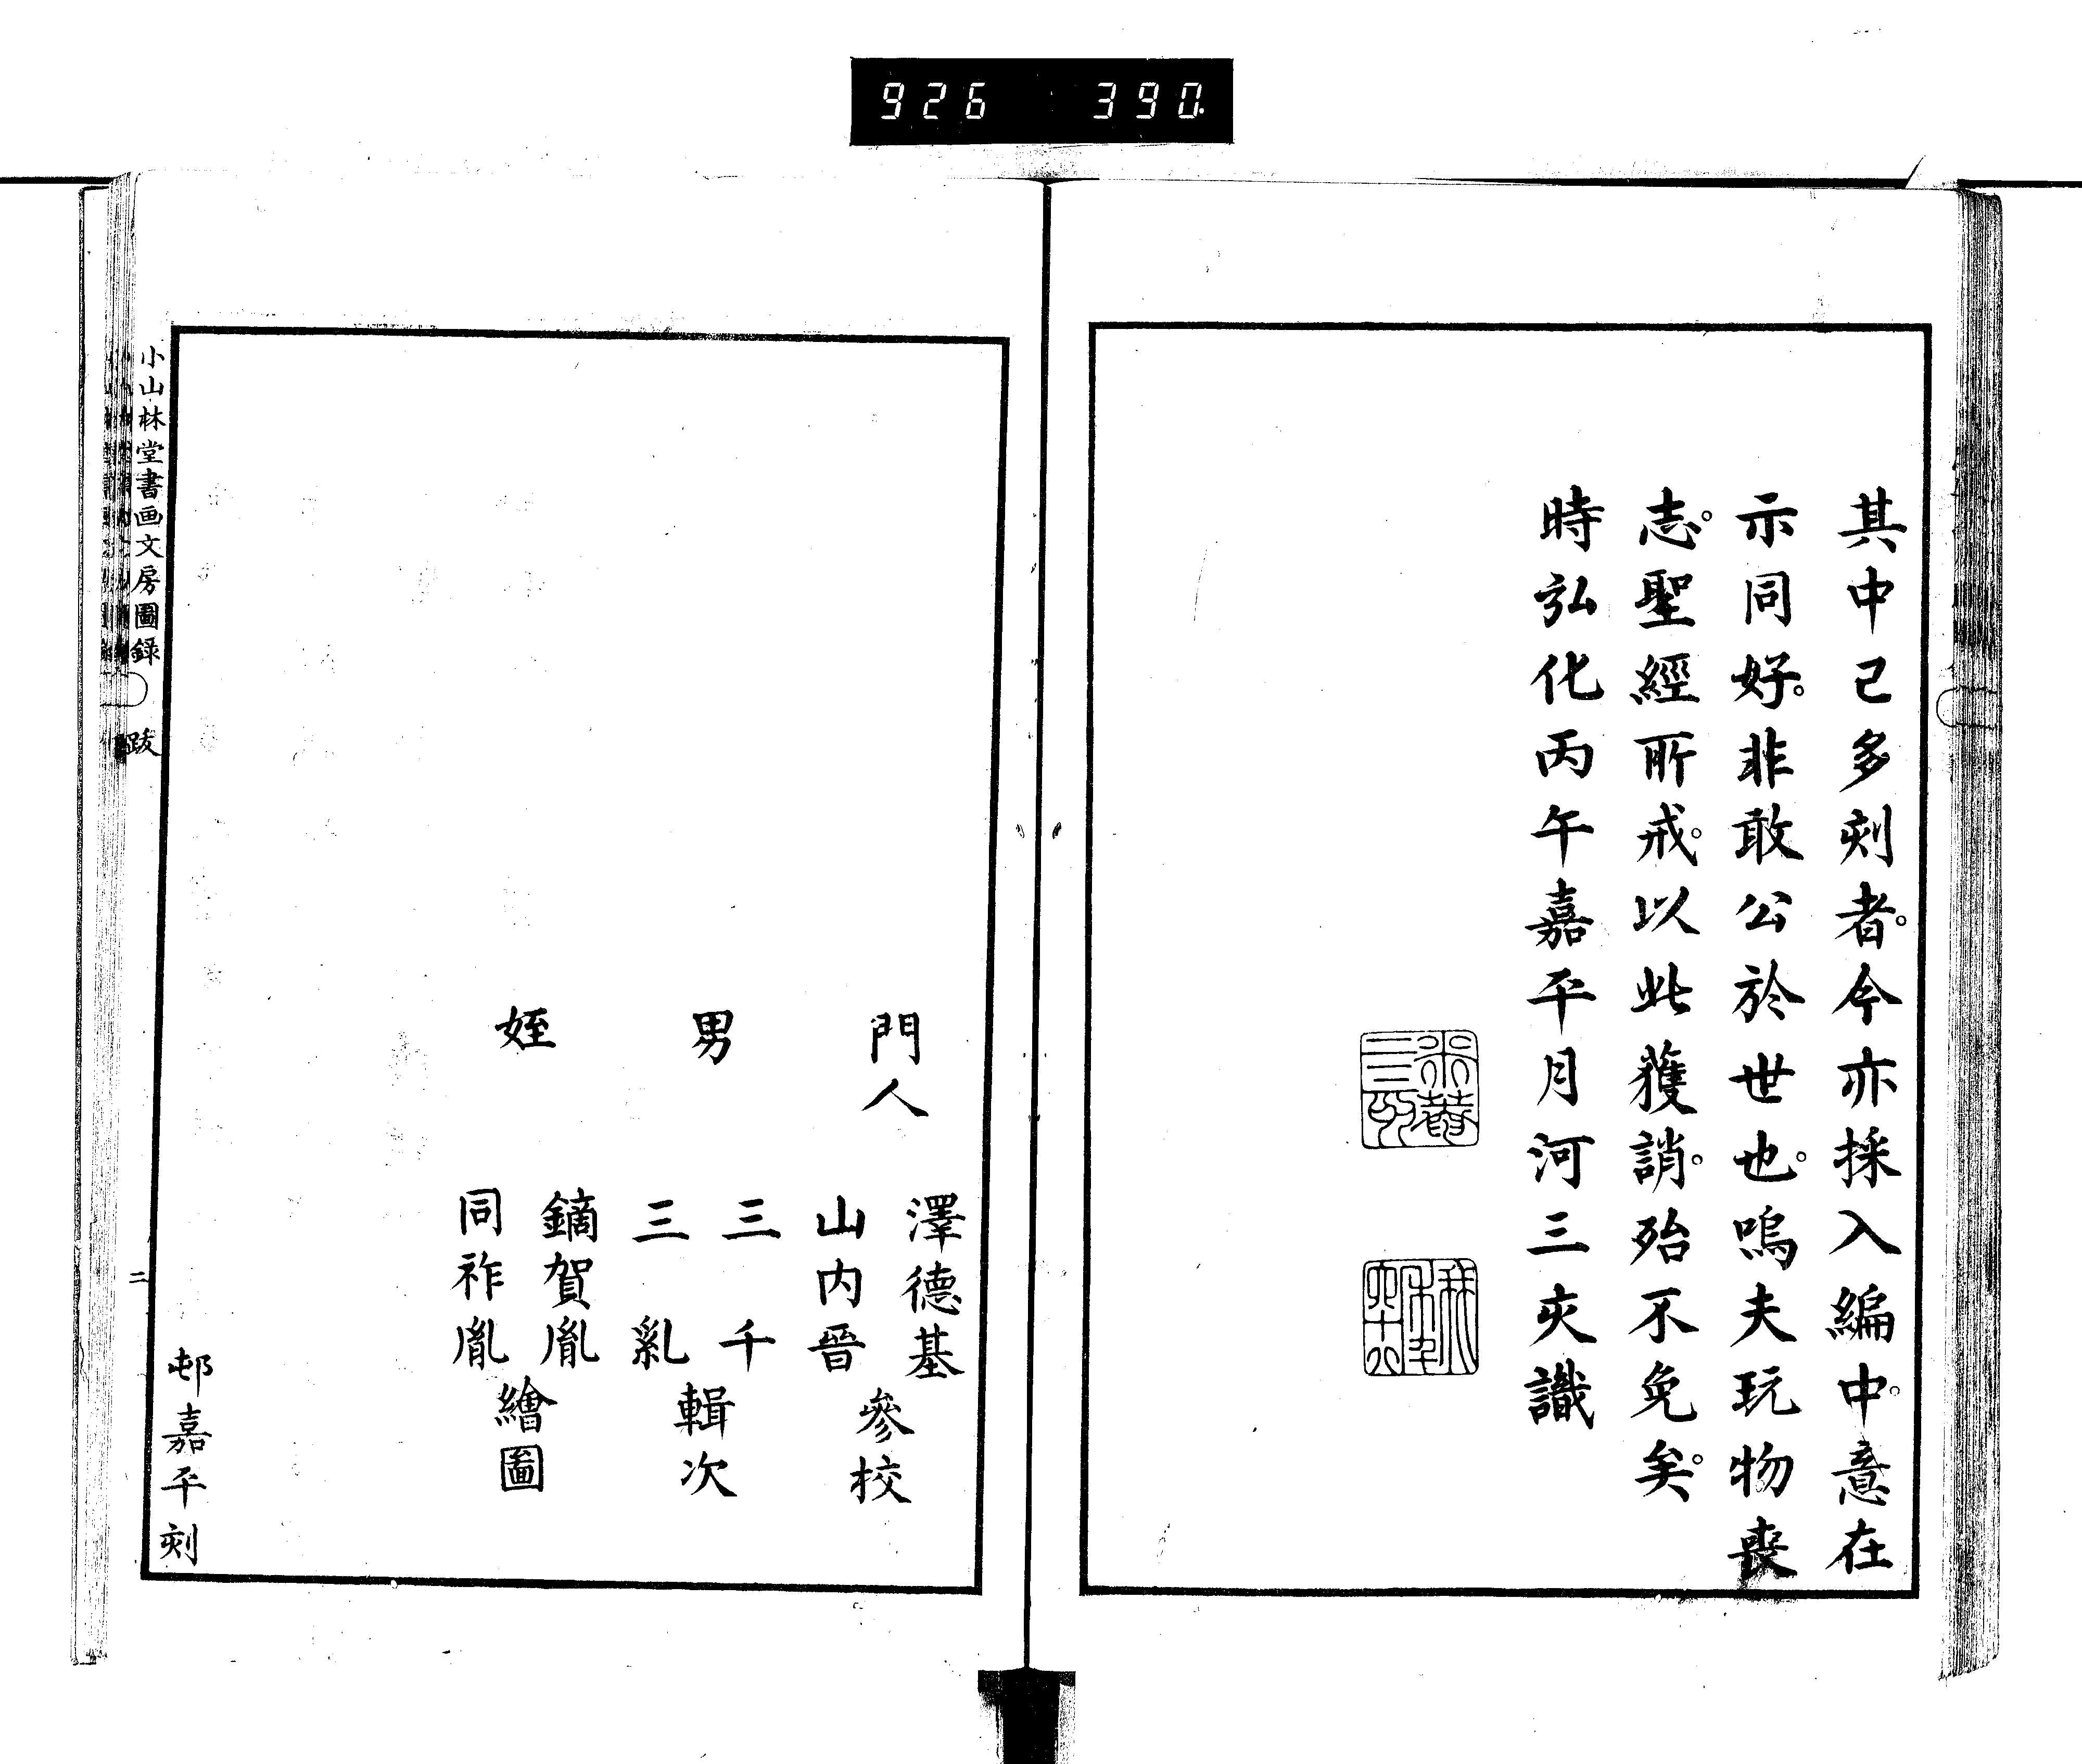 926 390
其中已多刻者。今亦採入編中。意在
示同好。非敢公於世也。嗚夫玩物喪
志。聖經所戒。以此獲誚。殆不免矣。
時弘化丙午嘉平月河三亥識
門人
澤德基
山内晉
參校
男
三千
三亂
輯次
姪
鏑賀胤
同祚胤
繪圖
邨嘉平刻
小山林堂書画文房圖錄
跋
二